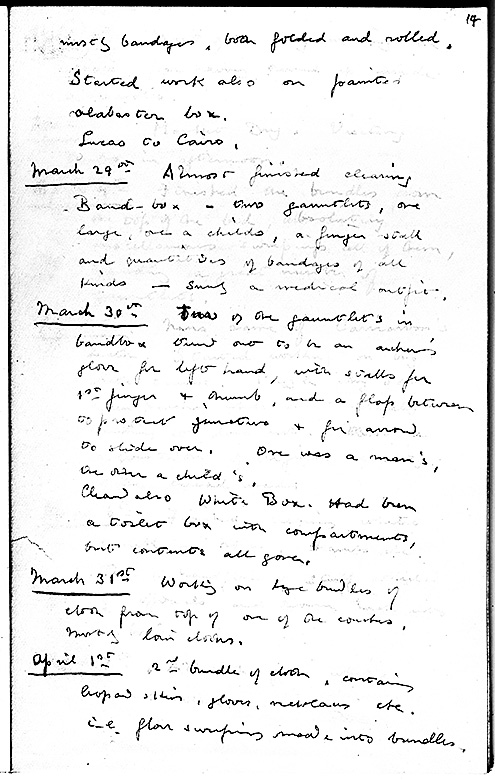 14
mostly bandages, both folded and rolled.
Started work also on painted
alabaster box.
Lucas to Cairo.
March 29th Almost finished clearing
Band-box - two gauntlets, one
large, one a childs, a finger stall
and quantities of bandages of all
kinds - surely a medical outfit.
March 30th Two of the gauntlets in
bandbox turned out to be an archer's
glove for left hand, with stalls for
1st finger & thumb, and a flap between
to protect & for arrow
to slide over. One was a man's,
the other a child's.
Cleared also White Box. Had been
a toilet box with compartments,
but contents all gone.
March 31st Working on large bundles of
cloth from top of one of the couches.
Mostly loin cloths.
April 1st 2nd bundle of cloth, contains
leopard skin, gloves, necklaces etc.
i.e. floor sweepings made into bundles.